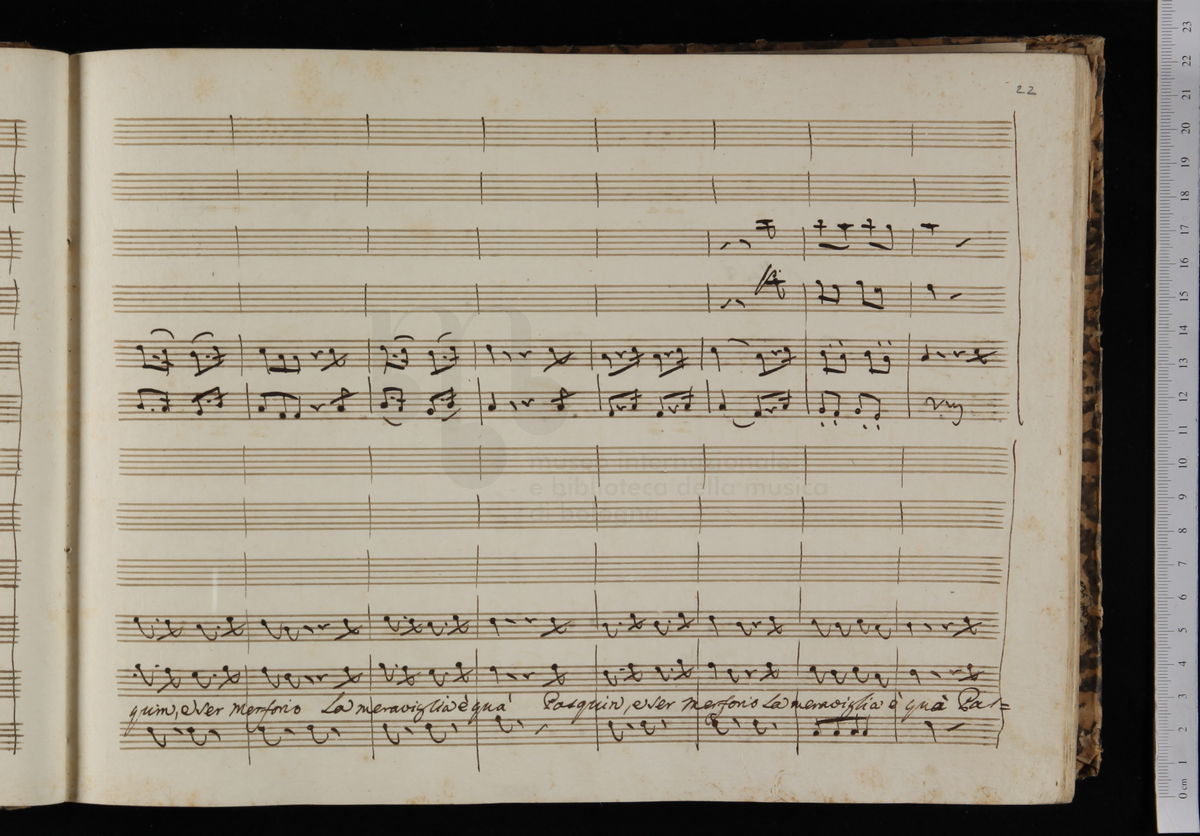 22
museo internazionale
e biblioteca della musica
di bologna
quin, e ser Merforio La meraviglia è quà Pasquin, e ser Merforio La meraviglia è quà Pas=
23
22
21
20
19
18
17
16
15
14
13
12
11
10
9
8
7
6
5
4
3
2
1
0 cm